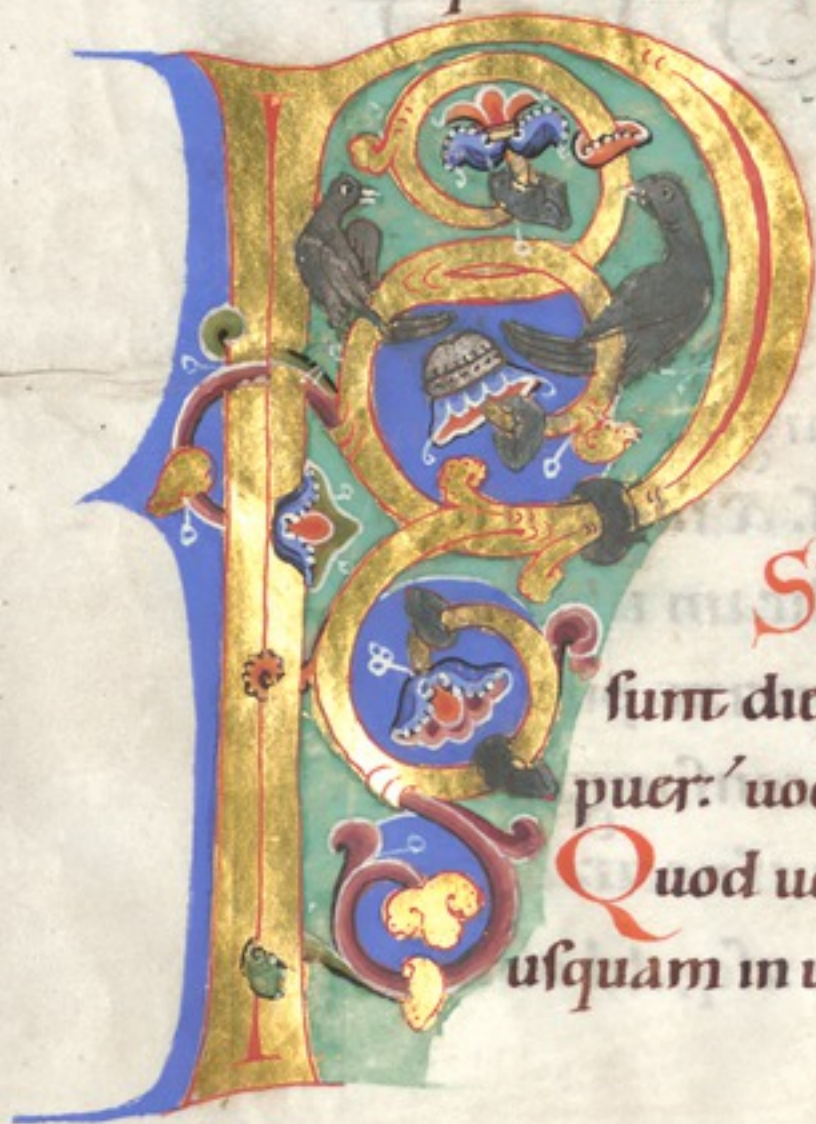 P
S
ſunt die
puer: uoc
Quod u
uſquam in u